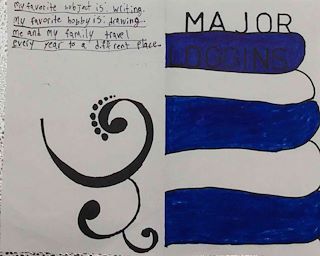 My favorite subject is: writing.
My favorite hobby is: drawing
me and my family travel
every year to a different place.
MAJOR
DOGINS